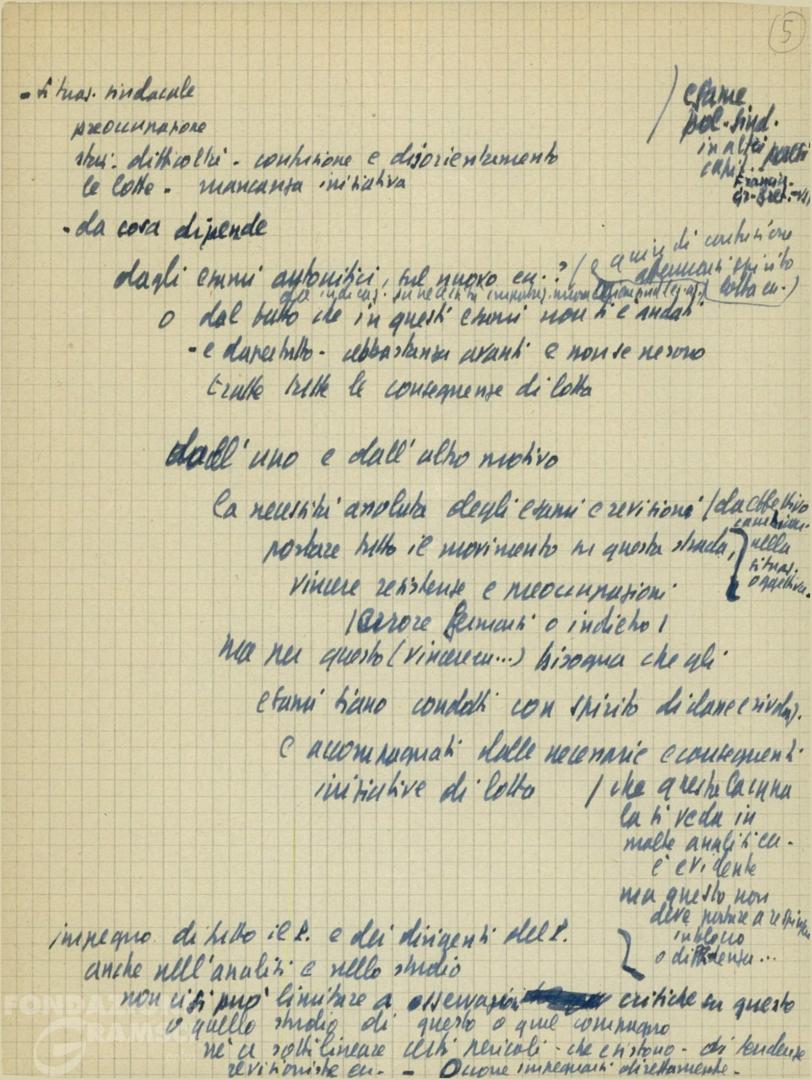 5
- situaz. sindacale
preoccupazione
difficoltà - confusione e disorientamento
le lotte - mancanza iniziativa
esame
pol. sind.
in altri paesi
capit.
- da cosa dipende
dagli esami autocritici, sul nuovo ecc.?
e quindi di confusione
spirito
lotta ecc.)
o dal fatto che in questi esami non si è andati
- e dapertutto - abbastanza avanti e non se ne sono
tratte tutte le conseguenze di lotta
dall'uno e dall'altro motivo
la necessità assoluta degli esami e revisioni
portare tutto il movimento su questa strada,
vincere resistenze e preoccupazioni
(errore fermarsi o indietro)
nella
situaz.
oggettiva
ma per questo (vincere ecc...) bisogna che gli
esami siano condotti con spirito di classe e rivoluz.
e accompagnati dalle necessarie e conseguenti
iniziative di lotta
/ che questa lacuna
la si veda in
molte analisi ecc.
è evidente
ma questo non
deve portare a respingere
in blocco
o diffidenza...
impegno di tutto il P. e dei dirigenti del P.
anche nell'analisi e nello studio
non ci si può limitare a osservazioni critiche su questo
o quello studio di questo o quel compagno
nè a sottolineare certi pericoli - che esistono - di tendenze
revisioniste ecc. - Occorre impegnarsi direttamente -
FONDAZIONE
GRAMSCI